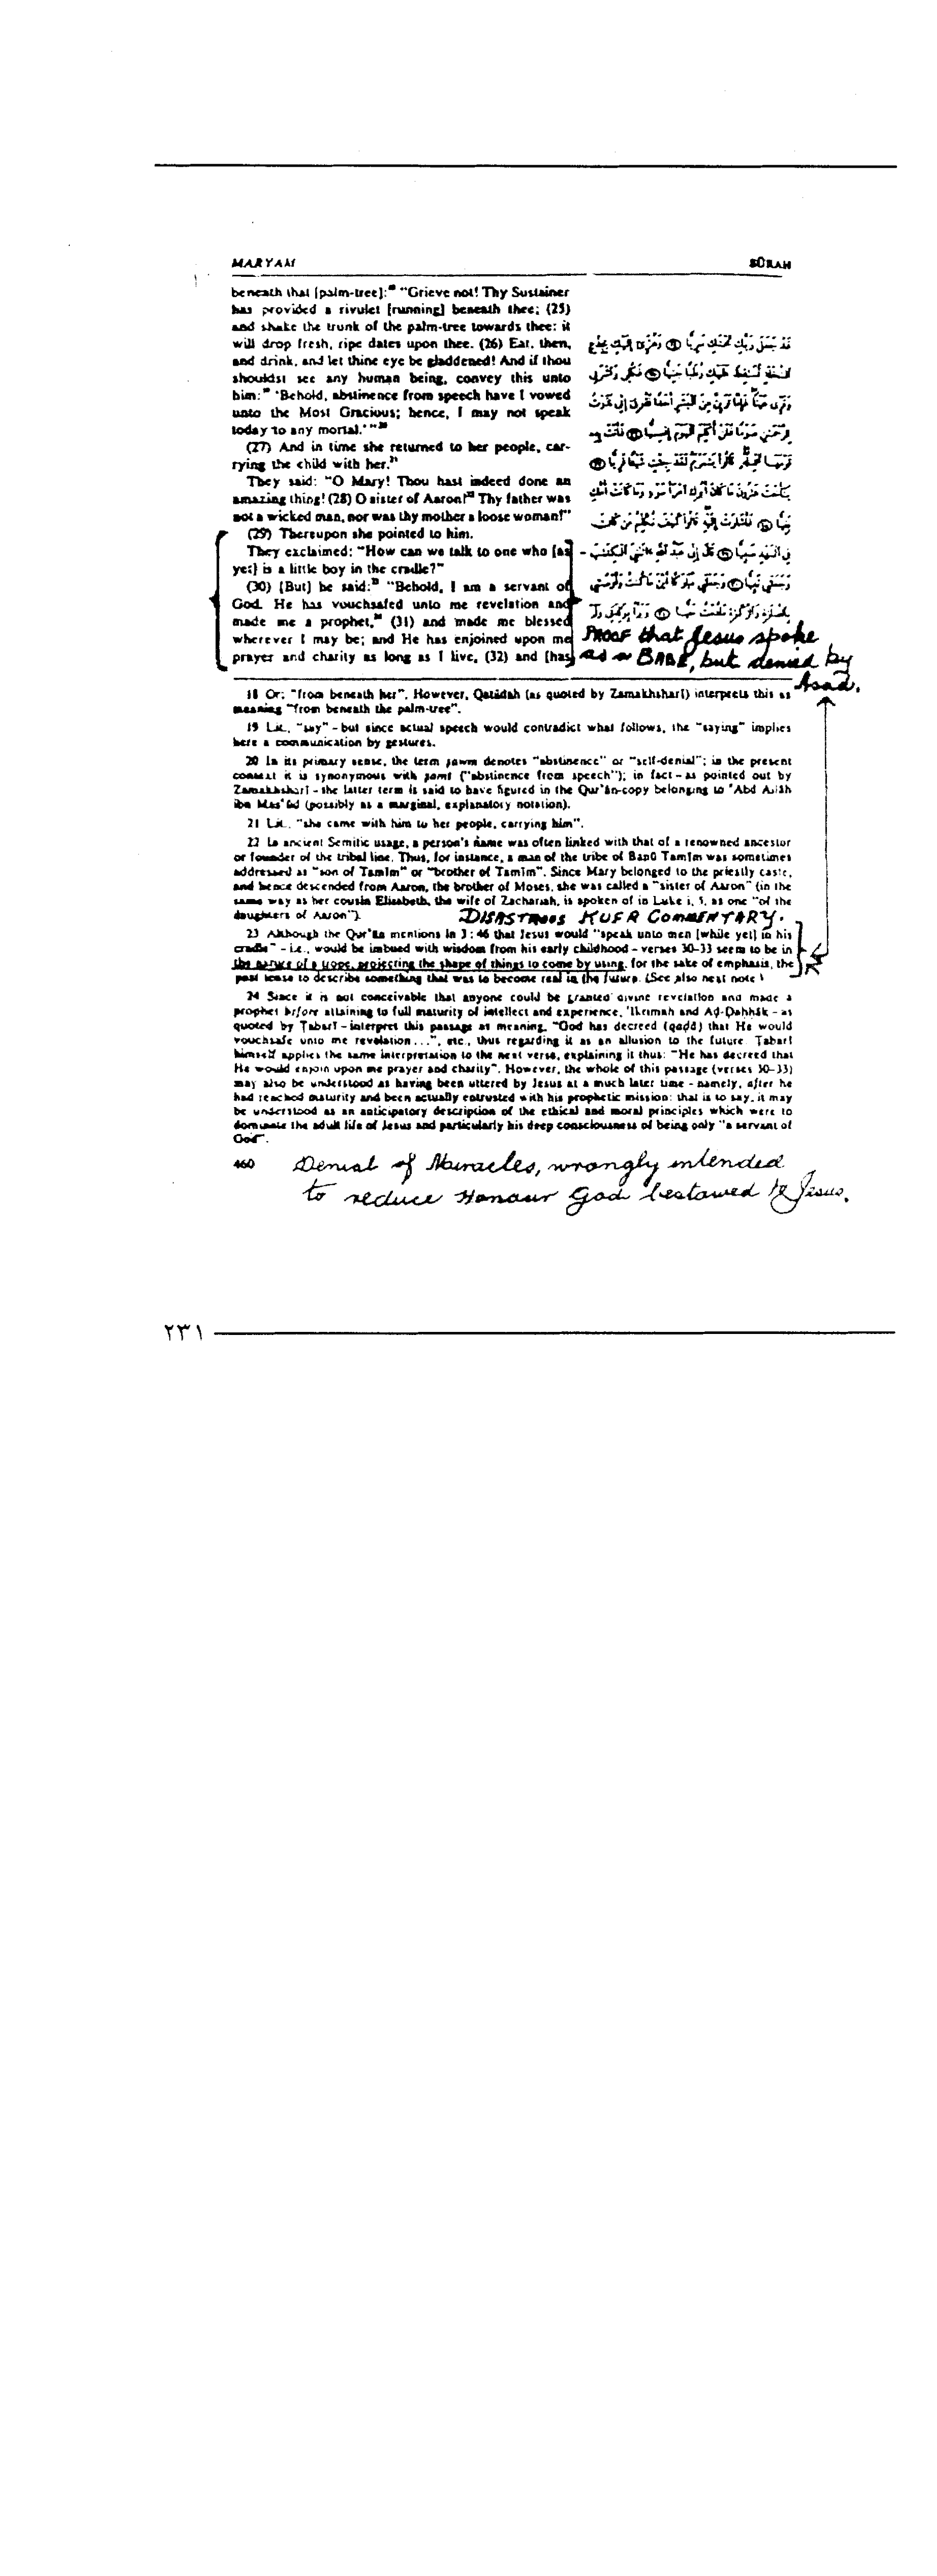 MARYAM
SŪRAH
beneath that [palm-tree]:¹⁸ "Grieve not! Thy Sustainer
has provided a rivulet [running] beneath thee; (25)
and shake the trunk of the palm-tree towards thee: it
will drop fresh, ripe dates upon thee. (26) Eat, then,
and drink, and let thine eye be gladdened! And if thou
shouldst see any human being, convey this unto
him:¹⁹ 'Behold, abstinence from speech have I vowed
unto the Most Gracious; hence, I may not speak
today to any mortal.'"²⁰
(27) And in time she returned to her people, car-
rying the child with her.²¹
They said: "O Mary! Thou hast indeed done an
amazing thing! (28) O sister of Aaron!²² Thy father was
not a wicked man, nor was thy mother a loose woman!"
(29) Thereupon she pointed to him.
They exclaimed: "How can we talk to one who [as
yet] is a little boy in the cradle?"
(30) [But] he said:²³ "Behold, I am a servant of
God. He has vouchsafed unto me revelation and
made me a prophet,²⁴ (31) and made me blessed
wherever I may be; and He has enjoined upon me
prayer and charity as long as I live, (32) and [has
PROOF that Jesus spoke
as a BABE, but denied by
Asad.
18 Or: "from beneath her". However, Qatādah (as quoted by Zamakhsharī) interprets this as
meaning "from beneath the palm-tree".
19 Lit., "say" – but since actual speech would contradict what follows, the "saying" implies
here a communication by gestures.
20 In its primary sense, the term ṣawm denotes "abstinence" or "self-denial"; in the present
context it is synonymous with ṣamt ("abstinence from speech"); in fact – as pointed out by
Zamakhsharī – the latter term is said to have figured in the Qur'ān-copy belonging to 'Abd Allāh
ibn Mas'ūd (possibly as a marginal, explanatory notation).
21 Lit., "she came with him to her people, carrying him".
22 In ancient Semitic usage, a person's name was often linked with that of a renowned ancestor
or founder of the tribal line. Thus, for instance, a man of the tribe of Banū Tamīm was sometimes
addressed as "son of Tamīm" or "brother of Tamīm". Since Mary belonged to the priestly caste,
and hence descended from Aaron, the brother of Moses, she was called a "sister of Aaron" (in the
same way as her cousin Elisabeth, the wife of Zachariah, is spoken of in Luke i, 5, as one "of the
daughters of Aaron").
DISASTROUS KUFR COMMENTARY.
23 Although the Qur'ān mentions in 3 : 46 that Jesus would "speak unto men [while yet] in his
cradle" – i.e., would be imbued with wisdom from his early childhood – verses 30-33 seem to be in
the nature of a trope, projecting the shape of things to come by using, for the sake of emphasis, the
past tense to describe something that was to become real in the future. (See also next note.)
24 Since it is not conceivable that anyone could be granted divine revelation and made a
prophet before attaining to full maturity of intellect and experience, 'Ikrimah and Aḍ-Ḍaḥḥāk – as
quoted by Ṭabarī – interpret this passage as meaning, "God has decreed (qaḍā) that He would
vouchsafe unto me revelation...", etc., thus regarding it as an allusion to the future. Ṭabarī
himself applies the same interpretation to the next verse, explaining it thus: "He has decreed that
He would enjoin upon me prayer and charity". However, the whole of this passage (verses 30-33)
may also be understood as having been uttered by Jesus at a much later time – namely, after he
had reached maturity and been actually entrusted with his prophetic mission: that is to say, it may
be understood as an anticipatory description of the ethical and moral principles which were to
dominate the adult life of Jesus and particularly his deep consciousness of being only "a servant of
God".
460
Denial of Miracles, wrongly intended
to reduce Honour God bestowed to Jesus.
٢٣١